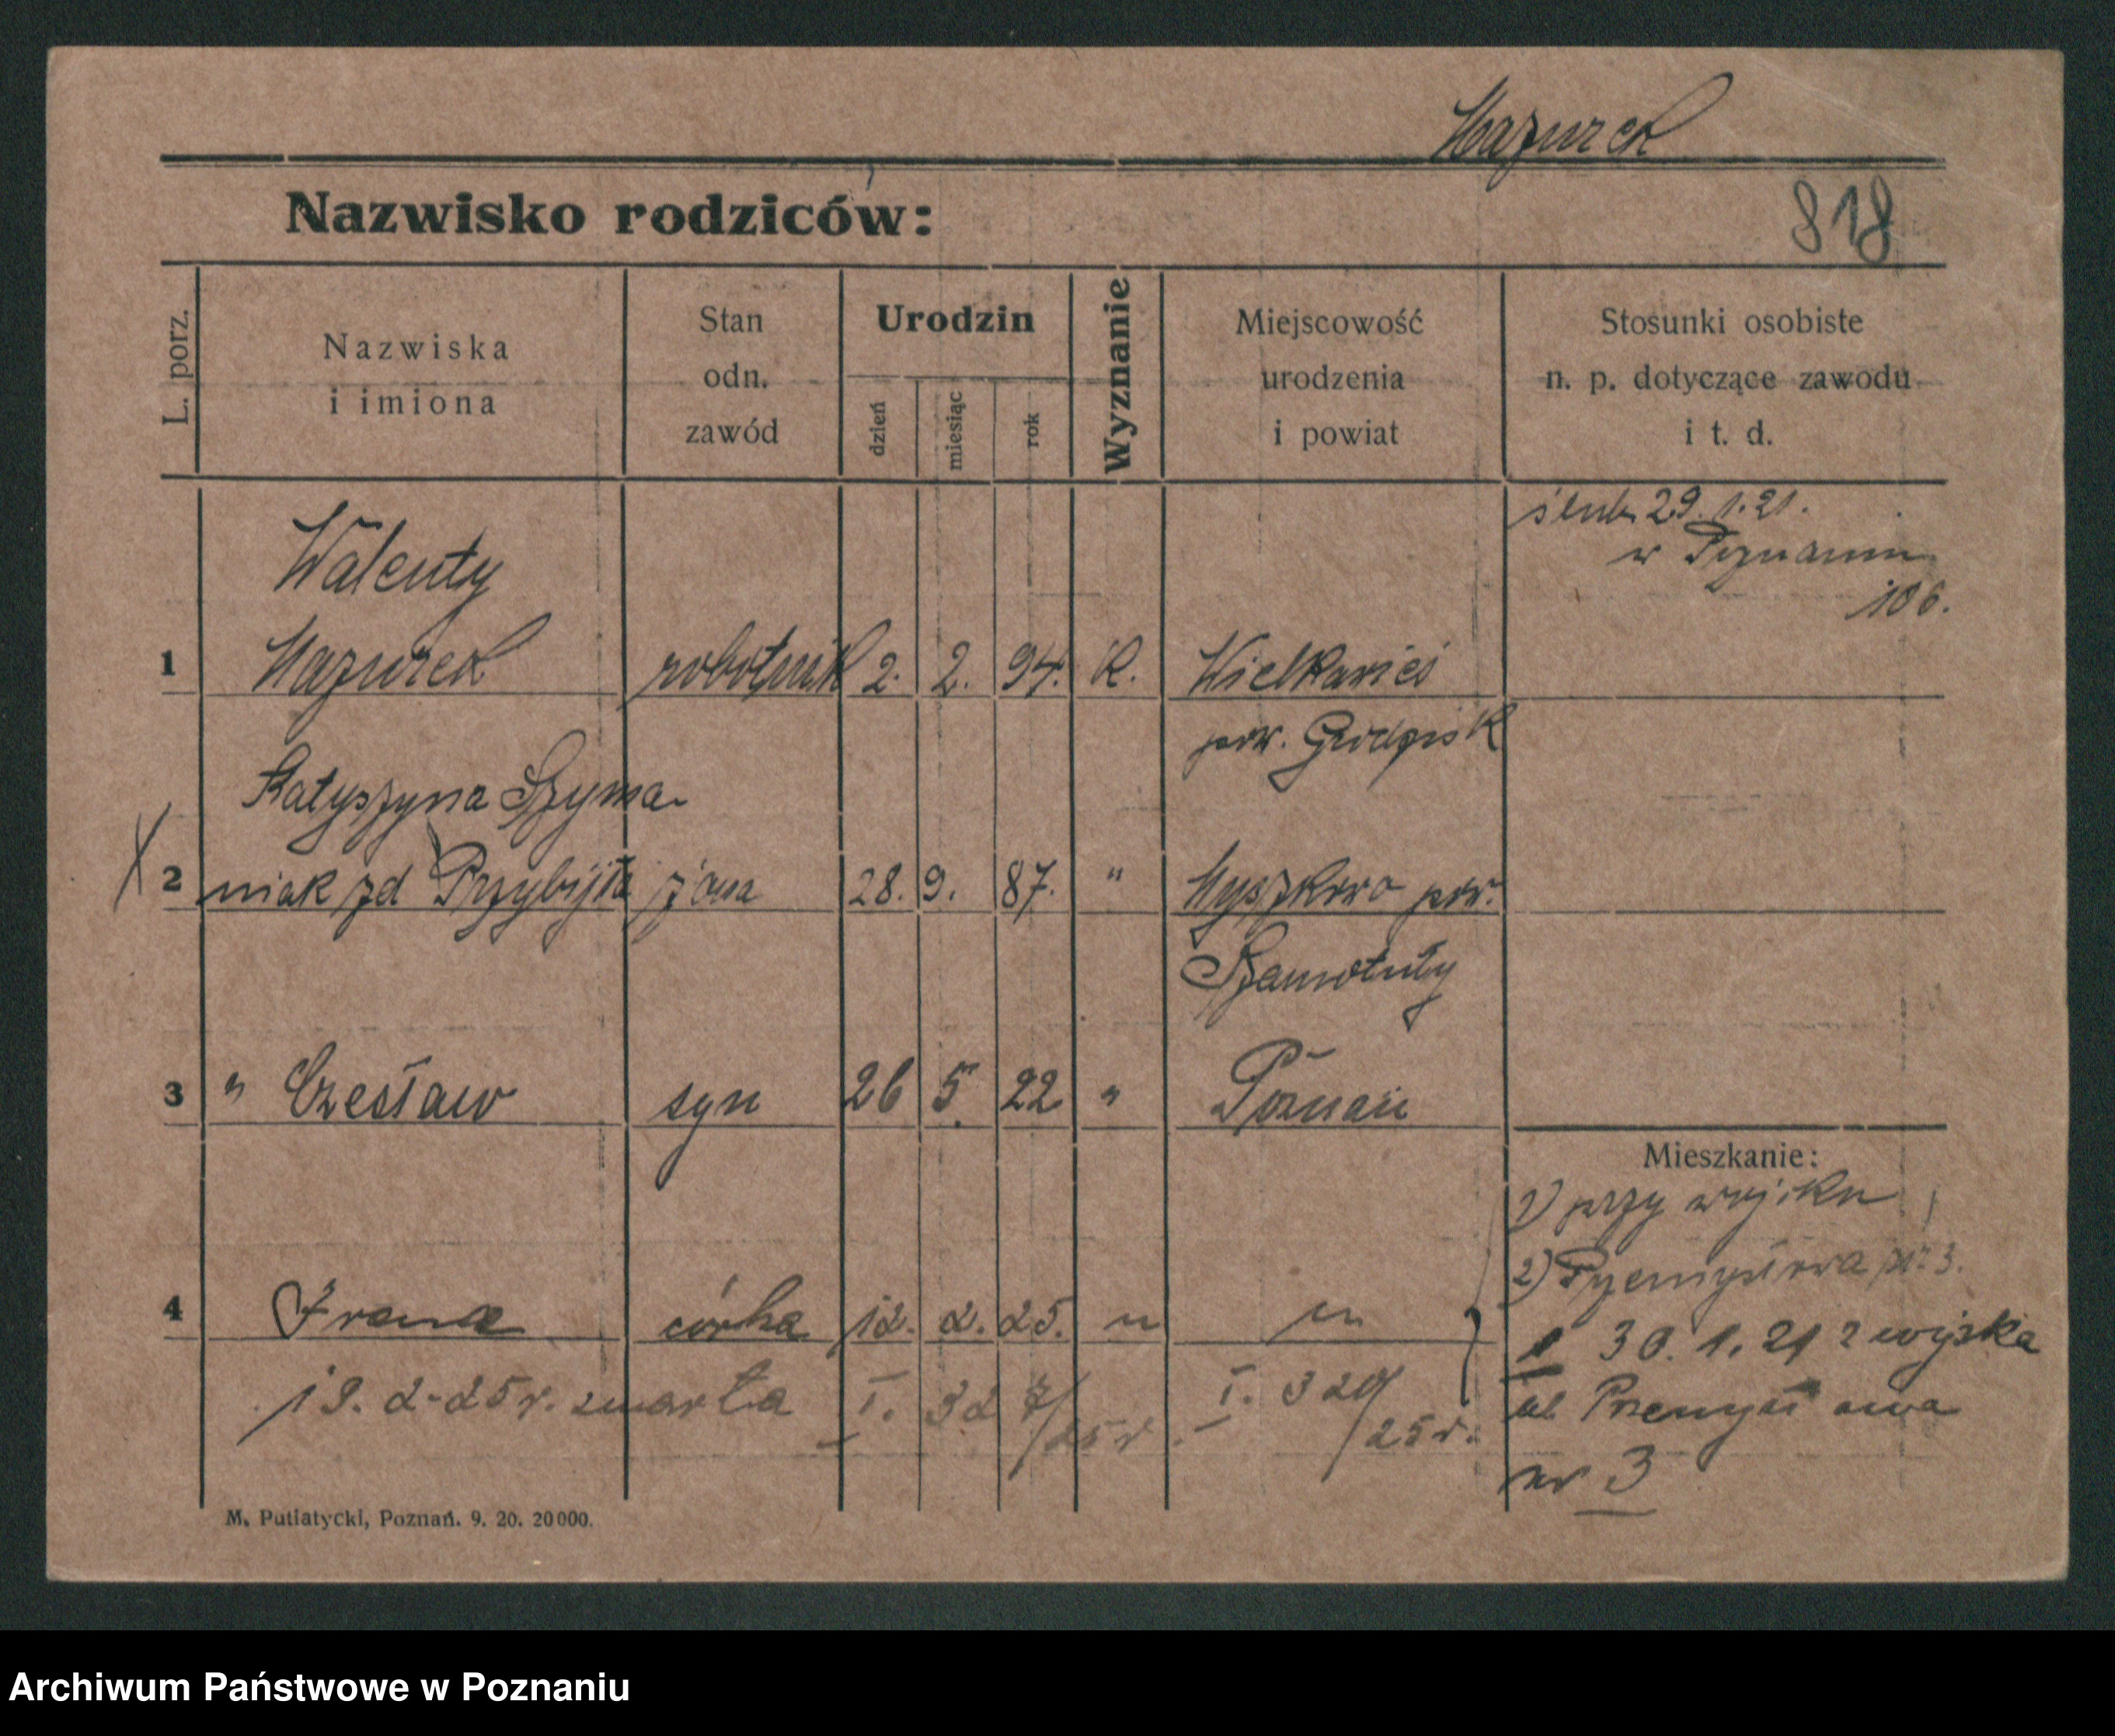 Mazurek
Nazwisko rodziców:
818
L. porz.
Nazwiska
i imiona
Stan
odn.
zawód
Urodzin
dzień
miesiąc
rok
Wyznanie
Miejscowość
urodzenia
i powiat
Stosunki osobiste
n. p. dotyczące zawodu
i t. d.
ślub 29.1.21.
w Poznaniu
106.
Walenty
1 Mazurek robotnik 2. 2. 94. K. Wielkawieś
pow. Grodzisk
Katyszyna Szyma-
2 niak zd Przybyła żona 28. 9. 87. " Myszkowo pow.
Szamotuły
3 " Czesław syn 26 5. 22 " Poznań
Mieszkanie:
1) przy wojsku
2) Przemysłowa nr. 3.
4 Irena córka 12. 2. 25. " "
30.1.21 z wojska
19.2.25r. zmarła I. 327/25r. I. 329/25r.
ul. Przemysłowa
nr 3
M. Putiatycki, Poznań. 9. 20. 20000.
Archiwum Państwowe w Poznaniu